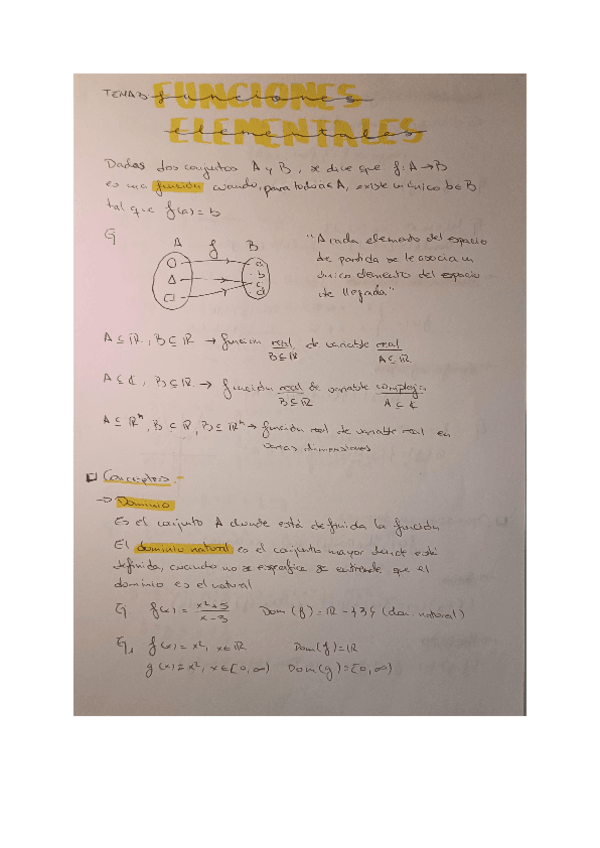 TEMA 3: FUNCIONES funciones
ELEMENTALES elementales
Dados dos conjuntos A y B, se dice que f: A → B
es una función cuando, para todo a ∈ A, existe un único b ∈ B
tal que f(a) = b
Ej
A f B
a
b
c
d
"A cada elemento del espacio
de partida se le asocia un
único elemento del espacio
de llegada"
A ⊆ ℝ, B ⊆ ℝ → función real de variable real
B ⊆ ℝ A ⊆ ℝ
A ⊆ ℂ, B ⊆ ℝ → función real de variable compleja
B ⊆ ℝ A ⊆ ℂ
A ⊆ ℝⁿ, B ⊆ ℝ, B ⊆ ℝⁿ → función real de variable real en
varias dimensiones
Conceptos.-
→ Dominio
Es el conjunto A donde está definida la función
El dominio natural es el conjunto mayor donde está
definida, cuando no se especifica se entiende que el
dominio es el natural
Ej f(x) = x²+5 / x-3 Dom (f) = ℝ - {3} (dom. natural)
Ej f(x) = x², x ∈ ℝ Dom(f) = ℝ
g(x) = x², x ∈ [0, ∞) Dom(g) = [0, ∞)